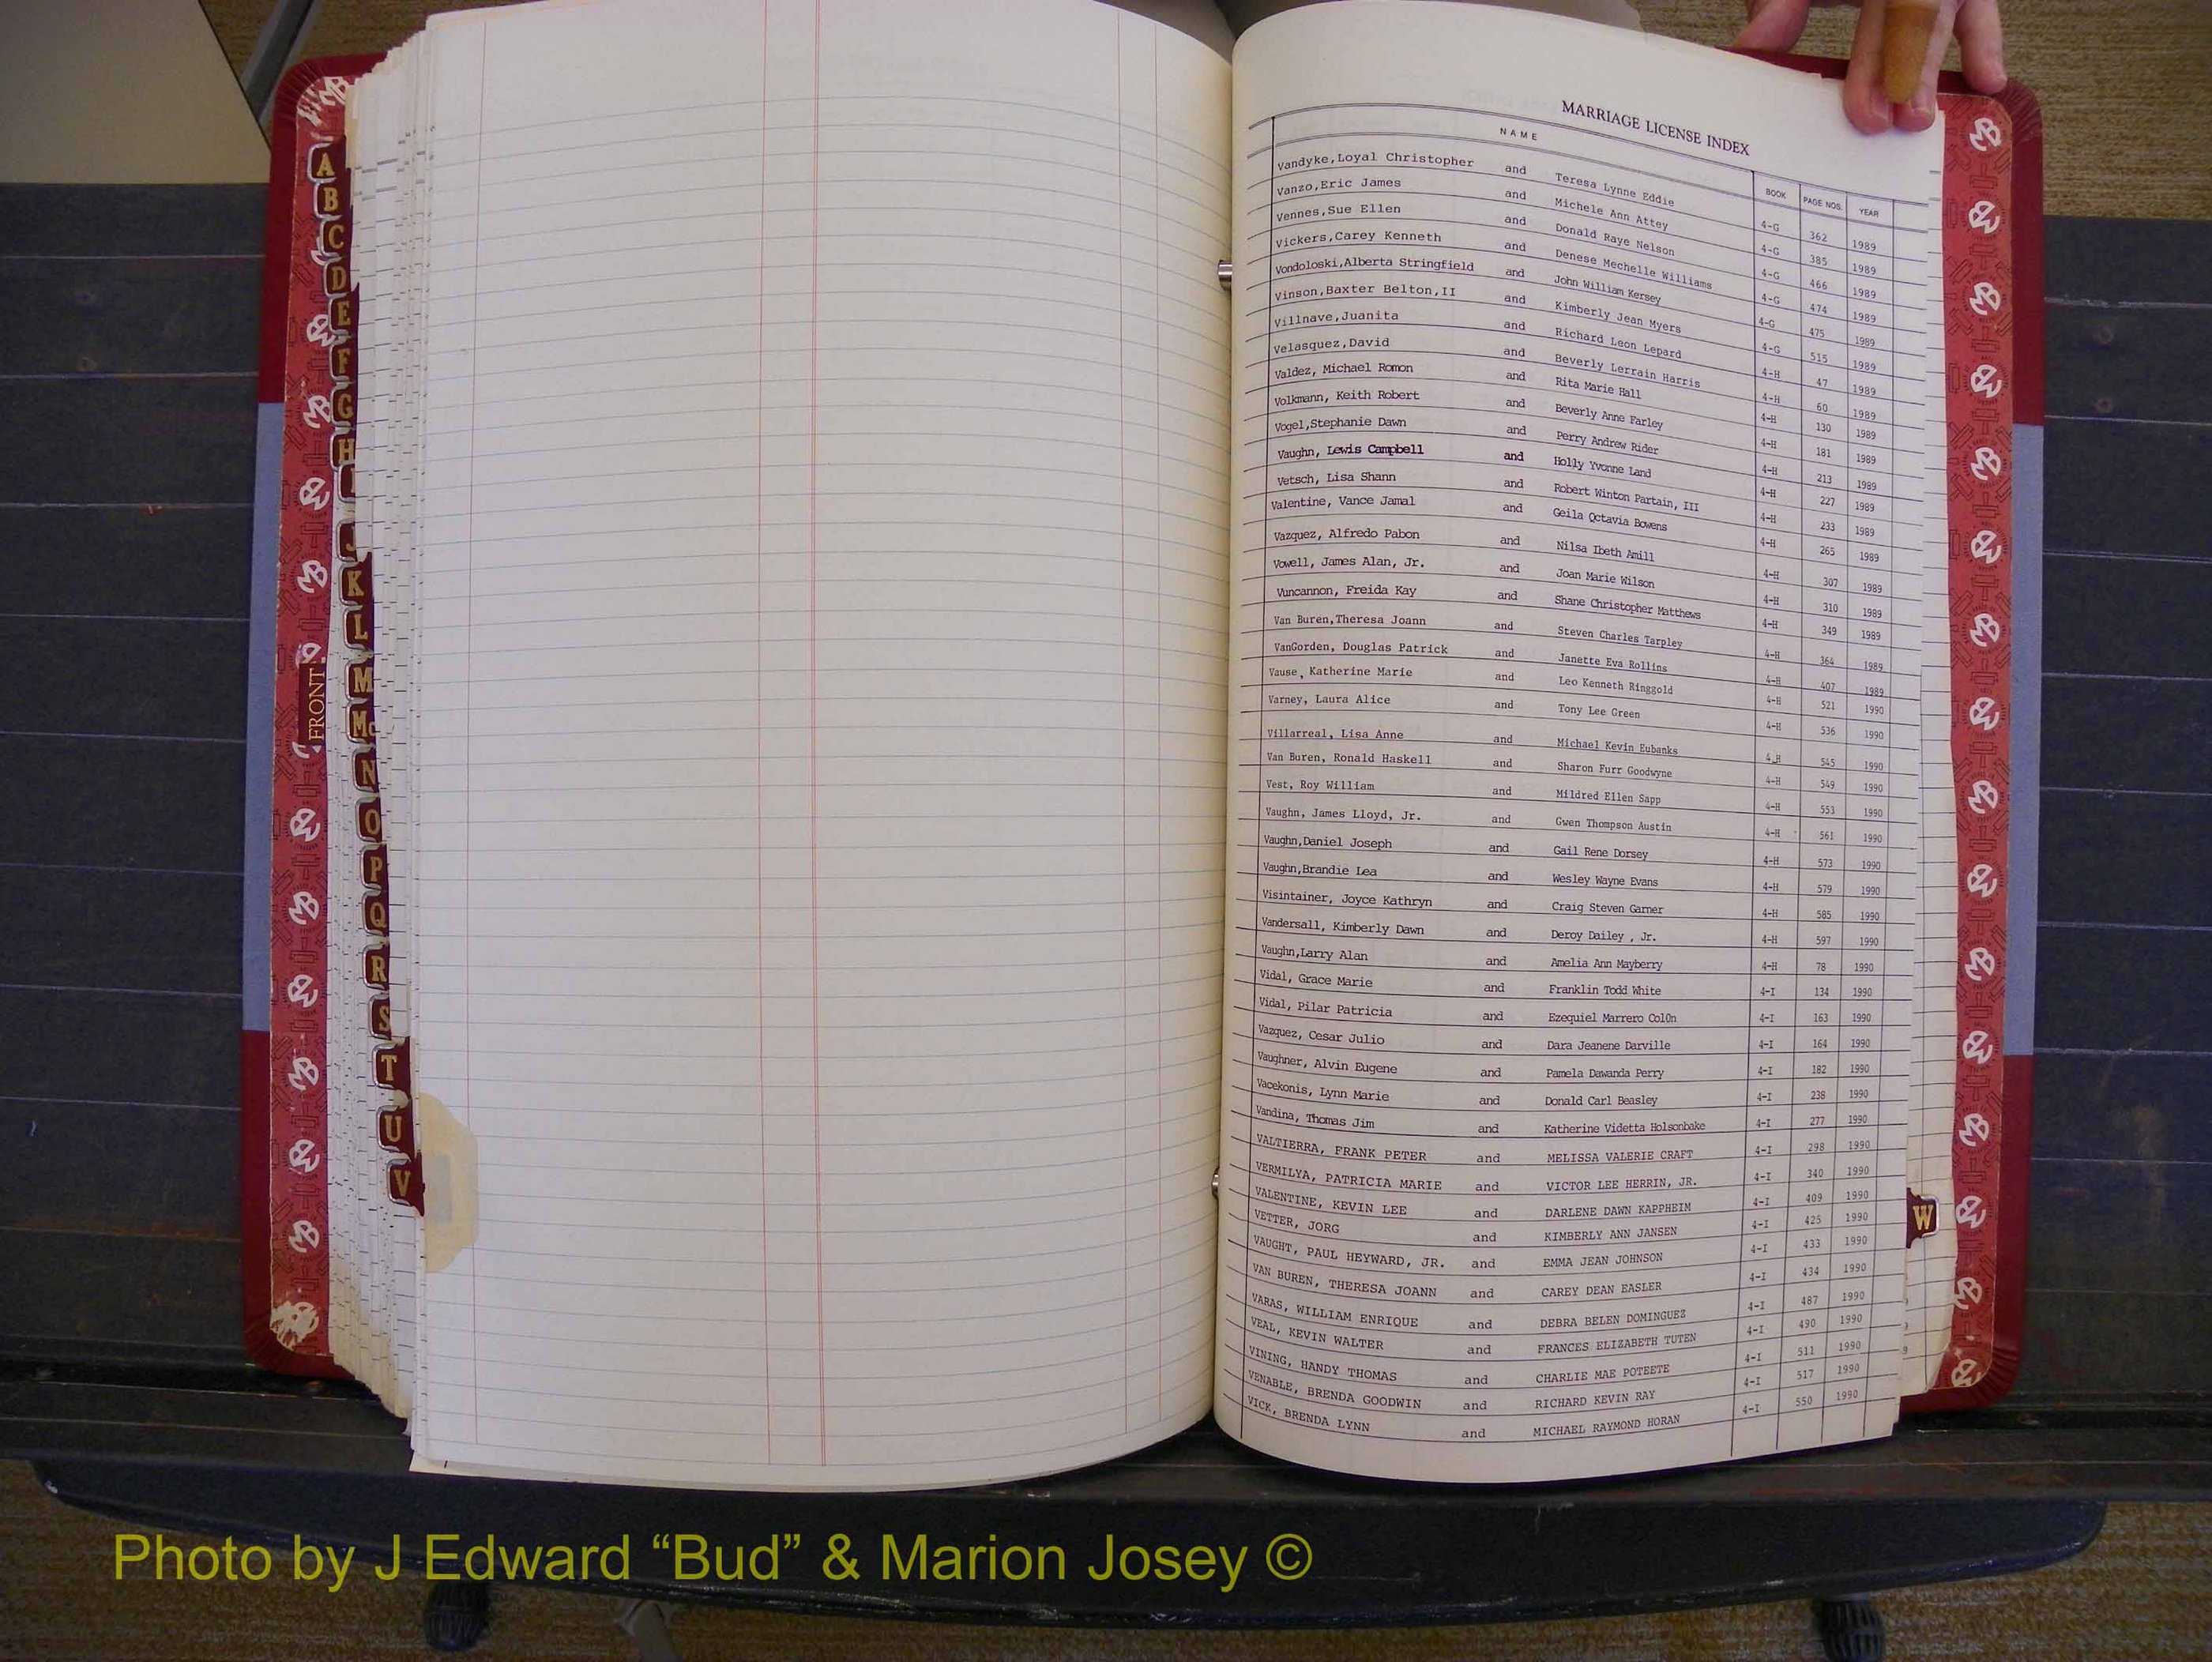 MARRIAGE LICENSE INDEX
NAME BOOK PAGE NOS. YEAR
Vandyke,Loyal Christopher and Teresa Lynne Eddie 4-G 362 1989
Vanzo,Eric James and Michele Ann Attey 4-G 385 1989
Vennes,Sue Ellen and Donald Raye Nelson 4-G 466 1989
Vickers,Carey Kenneth and Denese Mechelle Williams 4-G 474 1989
Vondoloski,Alberta Stringfield and John William Kersey 4-G 475 1989
Vinson,Baxter Belton,II and Kimberly Jean Myers 4-G 515 1989
Villnave,Juanita and Richard Leon Lepard 4-H 47 1989
Velasquez,David and Beverly Lerrain Harris 4-H 60 1989
Valdez, Michael Romon and Rita Marie Hall 4-H 130 1989
Volkmann, Keith Robert and Beverly Anne Farley 4-H 181 1989
Vogel,Stephanie Dawn and Perry Andrew Rider 4-H 213 1989
Vaughn, Lewis Campbell and Holly Yvonne Land 4-H 227 1989
Vetsch, Lisa Shann and Robert Winton Partain, III 4-H 233 1989
Valentine, Vance Jamal and Geila Octavia Bowens 4-H 265 1989
Vazquez, Alfredo Pabon and Nilsa Ibeth Amill 4-H 307 1989
Vowell, James Alan, Jr. and Joan Marie Wilson 4-H 310 1989
Vuncannon, Freida Kay and Shane Christopher Matthews 4-H 349 1989
Van Buren,Theresa Joann and Steven Charles Tarpley 4-H 364 1989
VanGorden, Douglas Patrick and Janette Eva Rollins 4-H 407 1989
Vause, Katherine Marie and Leo Kenneth Ringgold 4-H 521 1990
Varney, Laura Alice and Tony Lee Green 4-H 536 1990
Villarreal, Lisa Anne and Michael Kevin Eubanks 4-H 545 1990
Van Buren, Ronald Haskell and Sharon Furr Goodwyne 4-H 549 1990
Vest, Roy William and Mildred Ellen Sapp 4-H 553 1990
Vaughn, James Lloyd, Jr. and Gwen Thompson Austin 4-H 561 1990
Vaughn,Daniel Joseph and Gail Rene Dorsey 4-H 573 1990
Vaughn,Brandie Lea and Wesley Wayne Evans 4-H 579 1990
Visintainer, Joyce Kathryn and Craig Steven Garner 4-H 585 1990
Vandersall, Kimberly Dawn and Deroy Dailey , Jr. 4-H 597 1990
Vaughn,Larry Alan and Amelia Ann Mayberry 4-H 78 1990
Vidal, Grace Marie and Franklin Todd White 4-I 134 1990
Vidal, Pilar Patricia and Ezequiel Marrero Col0n 4-I 163 1990
Vazquez, Cesar Julio and Dara Jeanene Darville 4-I 164 1990
Vaughner, Alvin Eugene and Pamela Dawanda Perry 4-I 182 1990
Vacekonis, Lynn Marie and Donald Carl Beasley 4-I 238 1990
Vandina, Thomas Jim and Katherine Videtta Holsonbake 4-I 277 1990
VALTIERRA, FRANK PETER and MELISSA VALERIE CRAFT 4-I 298 1990
VERMILYA, PATRICIA MARIE and VICTOR LEE HERRIN, JR. 4-I 340 1990
VALENTINE, KEVIN LEE and DARLENE DAWN KAPPHEIM 4-I 409 1990
VETTER, JORG and KIMBERLY ANN JANSEN 4-I 425 1990
VAUGHT, PAUL HEYWARD, JR. and EMMA JEAN JOHNSON 4-I 433 1990
VAN BUREN, THERESA JOANN and CAREY DEAN EASLER 4-I 434 1990
VARAS, WILLIAM ENRIQUE and DEBRA BELEN DOMINGUEZ 4-I 487 1990
VEAL, KEVIN WALTER and FRANCES ELIZABETH TUTEN 4-I 490 1990
VINING, HANDY THOMAS and CHARLIE MAE POTEETE 4-I 511 1990
VENABLE, BRENDA GOODWIN and RICHARD KEVIN RAY 4-I 517 1990
VICK, BRENDA LYNN and MICHAEL RAYMOND HORAN 4-I 550 1990
A
B
C
D
E
F
G
H
J
K
L
M
Mc
N
O
P
Q
R
S
T
U
V
W
FRONT
Photo by J Edward “Bud” & Marion Josey ©